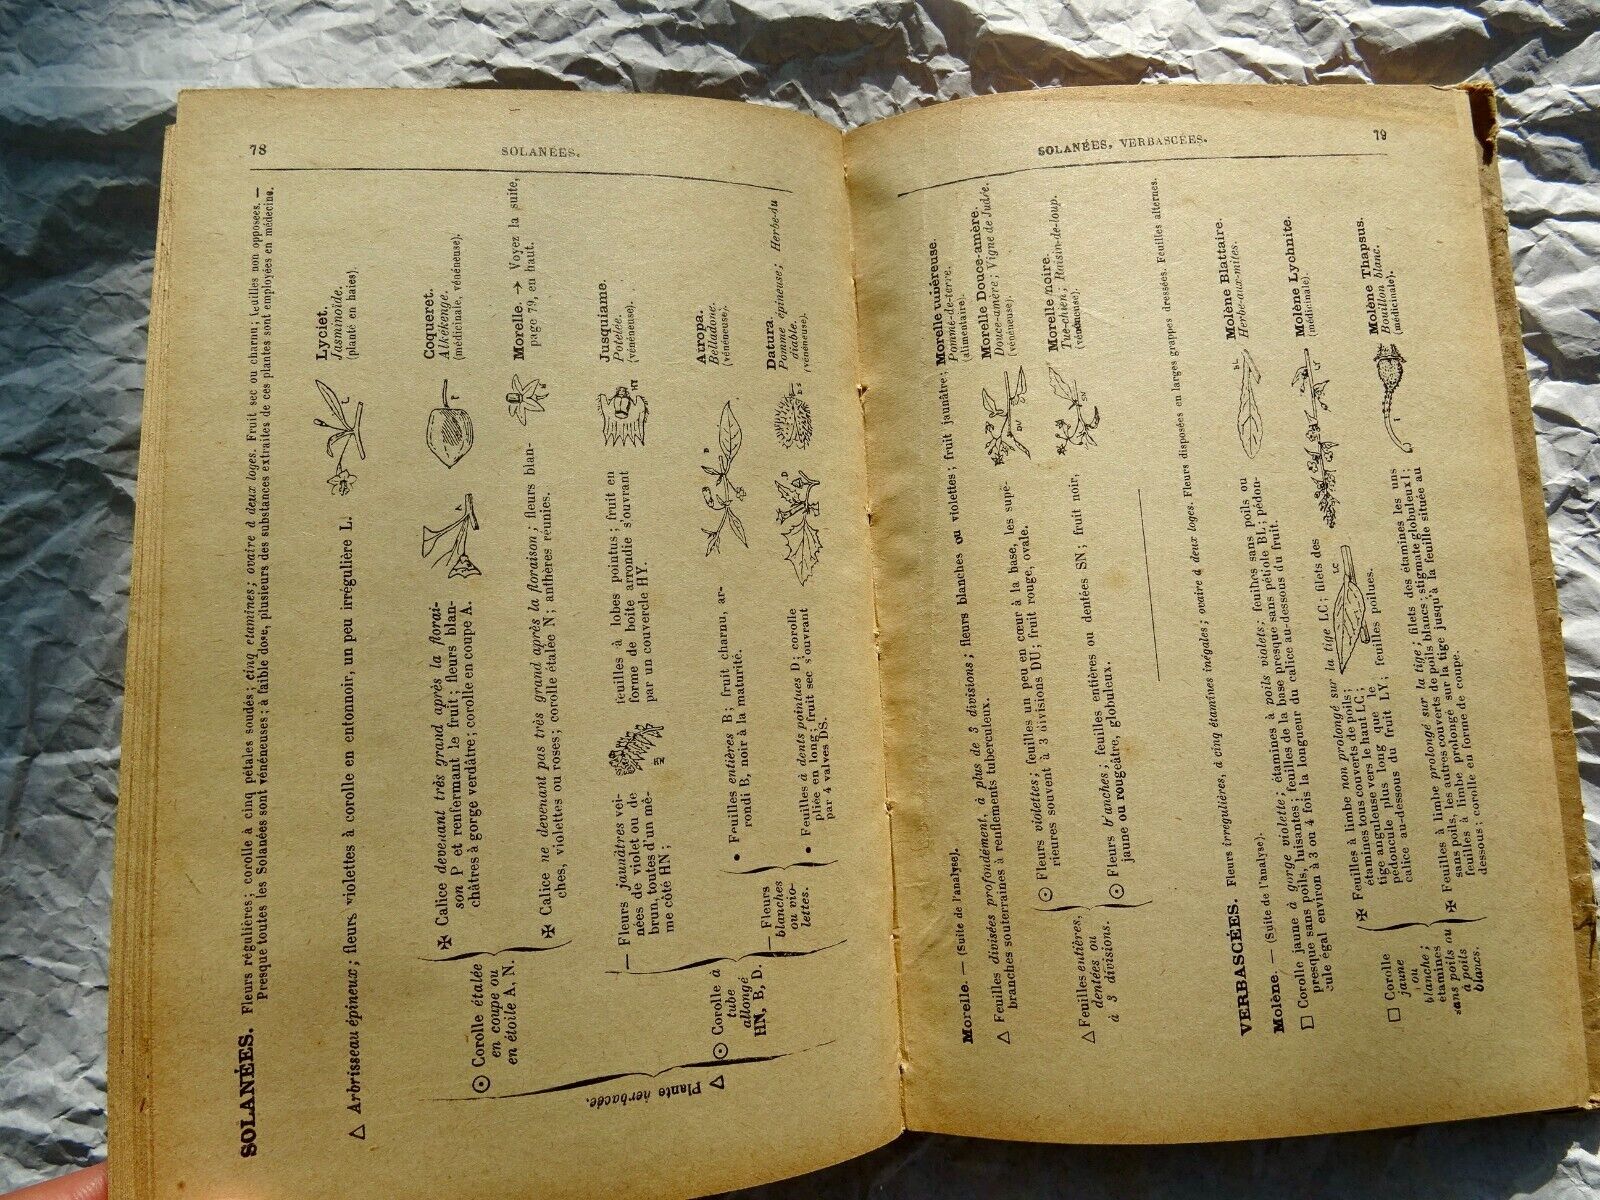 78
SOLANÉES.
SOLANÉES. Fleurs régulières; corolle à cinq pétales soudés; cinq étamines; ovaire à deux loges. Fruit sec ou charnu; feuilles non opposées. —
Presque toutes les Solanées sont vénéneuses; à faible dose, plusieurs des substances extraites de ces plantes sont employées en médecine.
△ Arbrisseau épineux; fleurs violettes à corolle en entonnoir, un peu irrégulière L.
L
Lyciet.
Jasminoïde.
(planté en haies).
Plante herbacée.
△
⊙ Corolle étalée
en coupe ou
en étoile A, N.
✠ Calice devenant très grand après la florai-
son P et renfermant le fruit; fleurs blan-
châtres à gorge verdâtre; corolle en coupe A.
A
P
Coqueret.
Alkékenge.
(médicinale, vénéneuse).
✠ Calice ne devenant pas très grand après la floraison; fleurs blan-
ches, violettes ou roses; corolle étalée N; anthères réunies.
N
Morelle. → Voyez la suite,
page 79, en haut.
⊙ Corolle à
tube
allongé
HN, B, D.
— Fleurs jaunâtres vei-
nées de violet ou de
brun, toutes d'un mê-
me côté HN;
HN
feuilles à lobes pointus; fruit en
forme de boîte arrondie s'ouvrant
par un couvercle HY.
HY
Jusquiame.
Potelée.
(vénéneuse).
— Fleurs
blanches
ou vio-
lettes.
• Feuilles entières B; fruit charnu, ar-
rondi B, noir à la maturité.
B
Atropa.
Belladone.
(vénéneuse).
• Feuilles à dents pointues D; corolle
pliée en long; fruit sec s'ouvrant
par 4 valves DS.
D
DS
Datura.
Pomme épineuse; Herbe-au
diable.
(vénéneuse).
SOLANÉES, VERBASCÉES.
79
Morelle. — (Suite de l'analyse).
△ Feuilles divisées profondément, à plus de 3 divisions; fleurs blanches ou violettes; fruit jaunâtre;
branches souterraines à renflements tuberculeux.
Morelle tubéreuse.
Pomme-de-terre.
(alimentaire).
△ Feuilles entières,
dentées ou
à 3 divisions.
⊙ Fleurs violettes; feuilles un peu en cœur à la base, les supé-
rieures souvent à 3 divisions DU; fruit rouge, ovale.
DU
Morelle Douce-amère.
Douce-amère; Vigne de Judée.
(vénéneuse).
⊙ Fleurs blanches; feuilles entières ou dentées SN; fruit noir,
jaune ou rougeâtre, globuleux.
SN
Morelle noire.
Tue-chien; Raisin-de-loup.
(vénéneuse).
VERBASCÉES. Fleurs irrégulières, à cinq étamines inégales; ovaire à deux loges. Fleurs disposées en larges grappes dressées. Feuilles alternes.
Molène. — (Suite de l'analyse).
□ Corolle jaune à gorge violette; étamines à poils violets; feuilles sans poils ou
presque sans poils, luisantes; feuilles de la base presque sans pétiole BL; pédon-
cule égal environ à 3 ou 4 fois la longueur du calice au-dessous du fruit.
BL
Molène Blattaire.
Herbe-aux-mites.
□ Corolle
jaune
ou
blanche;
étamines
sans poils ou
à poils
blancs.
✠ Feuilles à limbe non prolongé sur la tige LC; filets des
étamines tous couverts de poils;
tige anguleuse vers le haut LC;
pédoncule plus long que le
calice au-dessous du fruit LY;
LC
feuilles poilues.
Molène Lychnite.
(médicinale).
✠ Feuilles à limbe prolongé sur la tige; filets des étamines les uns
sans poils, les autres couverts de poils blancs; stigmate globuleux T;
feuilles à limbe prolongé sur la tige jusqu'à la feuille située au
dessous; corolle en forme de coupe.
T
Molène Thapsus.
Bouillon blanc.
(médicinale).